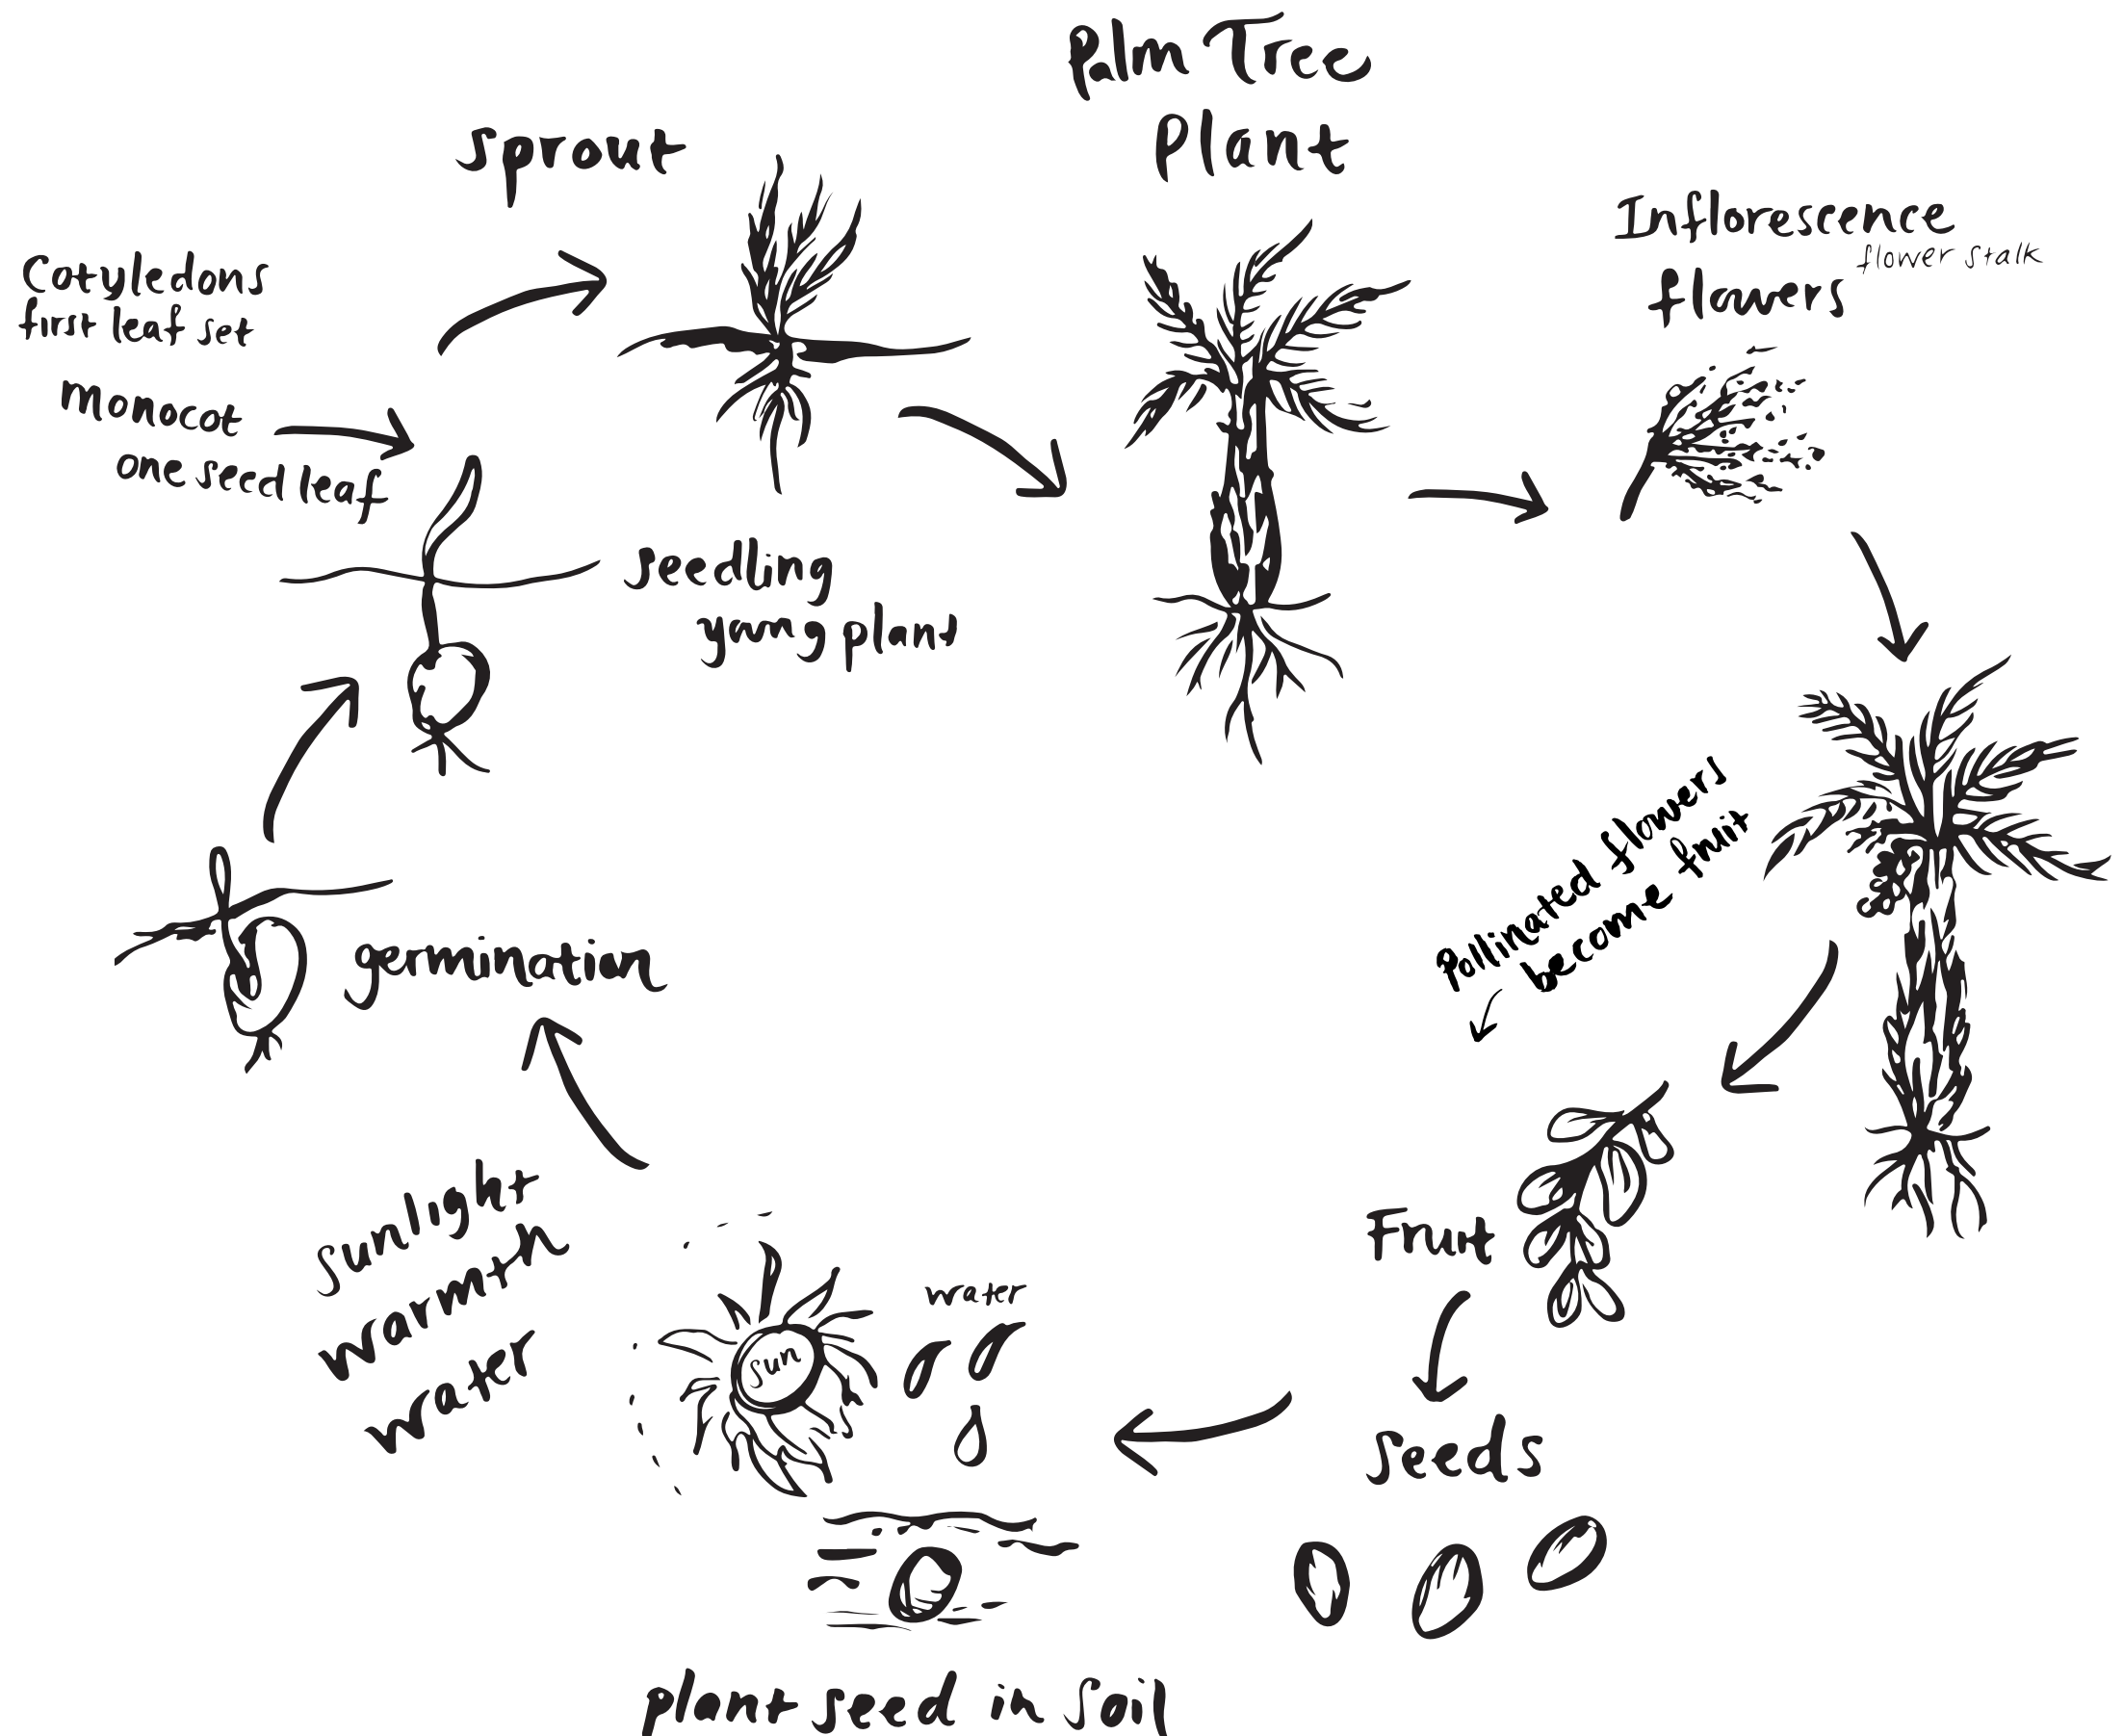 Palm Tree
Plant
Sprout
Inflorescence
flower stalk
flowers
Cotyledons
first leaf set
monocot
one seed leaf
seedling
young plant
germination
Pollinated flowers
become fruit
Fruit
Seeds
sunlight
warmth
water
sun
water
plant seed in soil